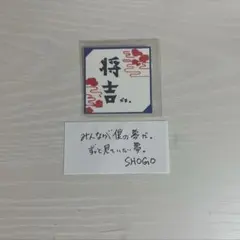 将
吉
みんなが僕の夢が。
ずっと見ていたい夢。
SHOGO